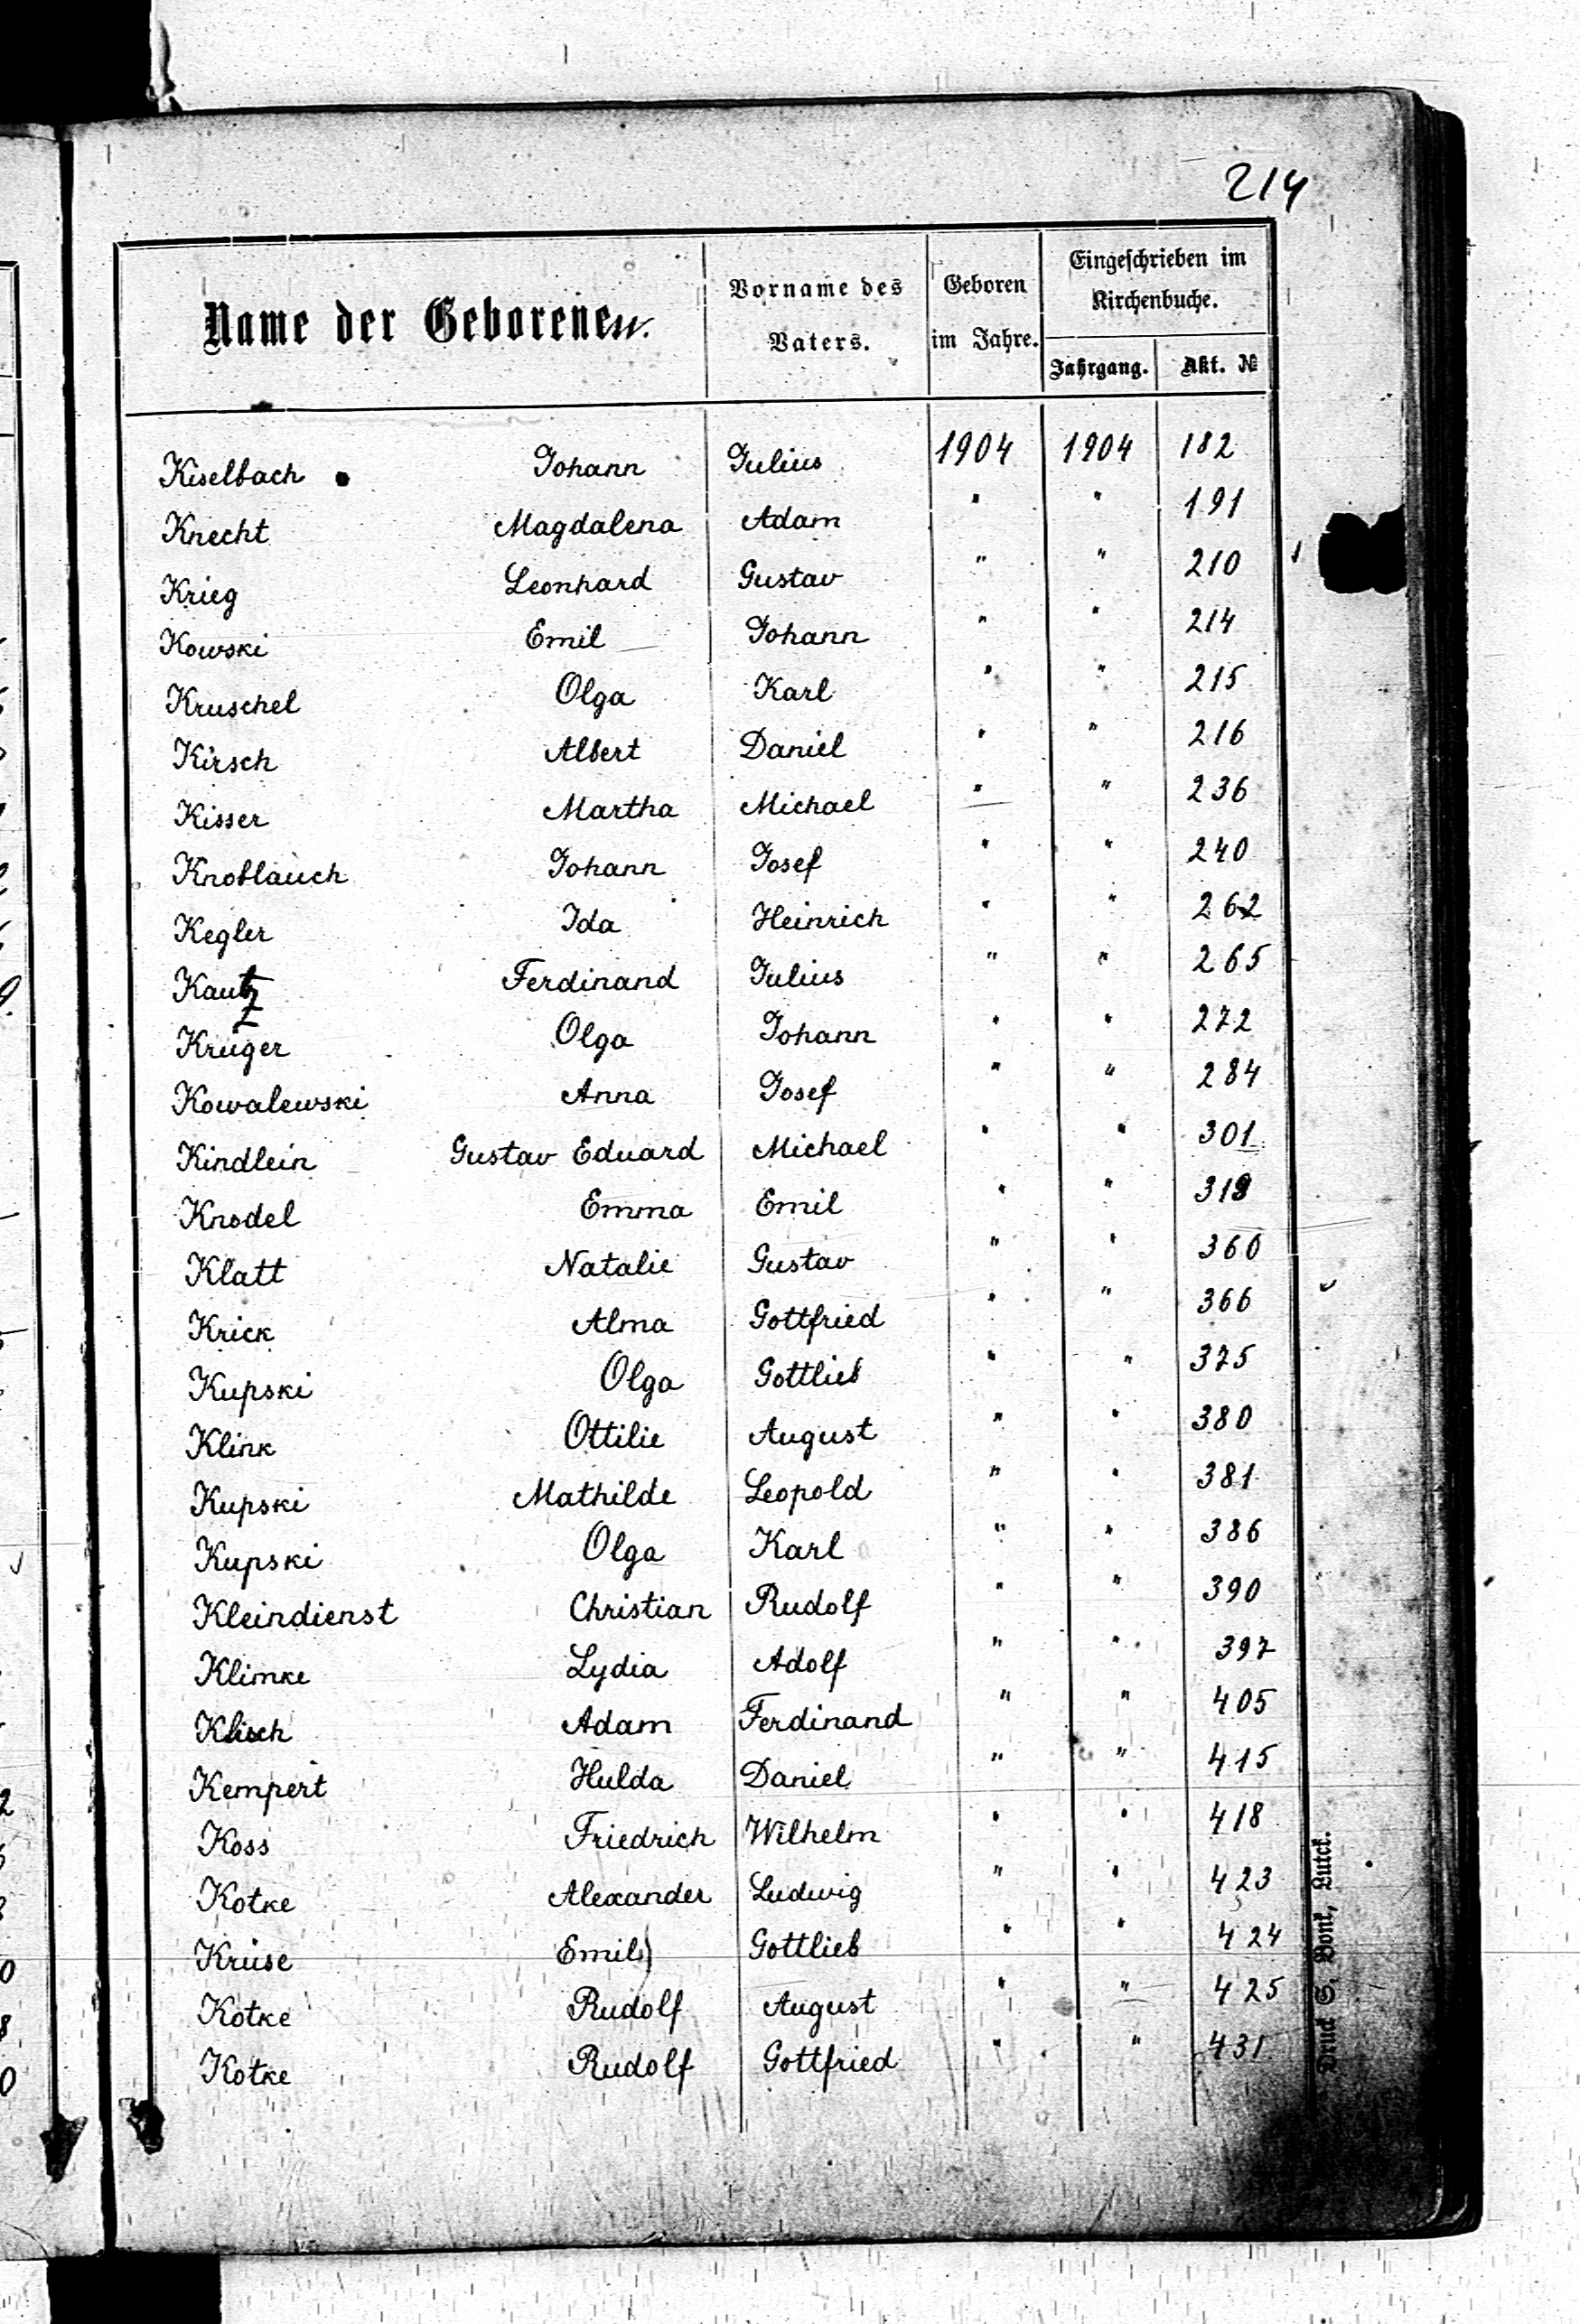 214
Name der Geborenen.
Vorname des Vaters.
Geboren im Jahre.
Eingeschrieben im Kirchenbuche.
Jahrgang. Akt. №
Kiselbach Johann Julius 1904 1904 182
Knecht Magdalena Adam " " 191
Krieg Leonhard Gustav " " 210
Kowski Emil Johann " " 214
Kruschel Olga Karl " " 215
Kirsch Albert Daniel " " 216
Kisser Martha Michael " " 236
Knoblauch Johann Josef " " 240
Kegler Ida Heinrich " " 262
Kautz Ferdinand Julius " " 265
Krüger Olga Johann " " 272
Kowalewski Anna Josef " " 284
Kindlein Gustav Eduard Michael " " 301
Knodel Emma Emil " " 319
Klatt Natalie Gustav " " 360
Krick Alma Gottfried " " 366
Kupski Olga Gottlieb " " 375
Klink Ottilie August " " 380
Kupski Mathilde Leopold " " 381
Kupski Olga Karl " " 386
Kleindienst Christian Rudolf " " 390
Klimke Lydia Adolf " " 397
Klisch Adam Ferdinand " " 405
Kempert Hulda Daniel " " 415
Koss Friedrich Wilhelm " " 418
Kotke Alexander Ludwig " " 423
Kruse Emil Gottlieb " " 424
Kotke Rudolf August " " 425
Kotke Rudolf Gottfried " " 431
Druck S. Bonk, Lutck.